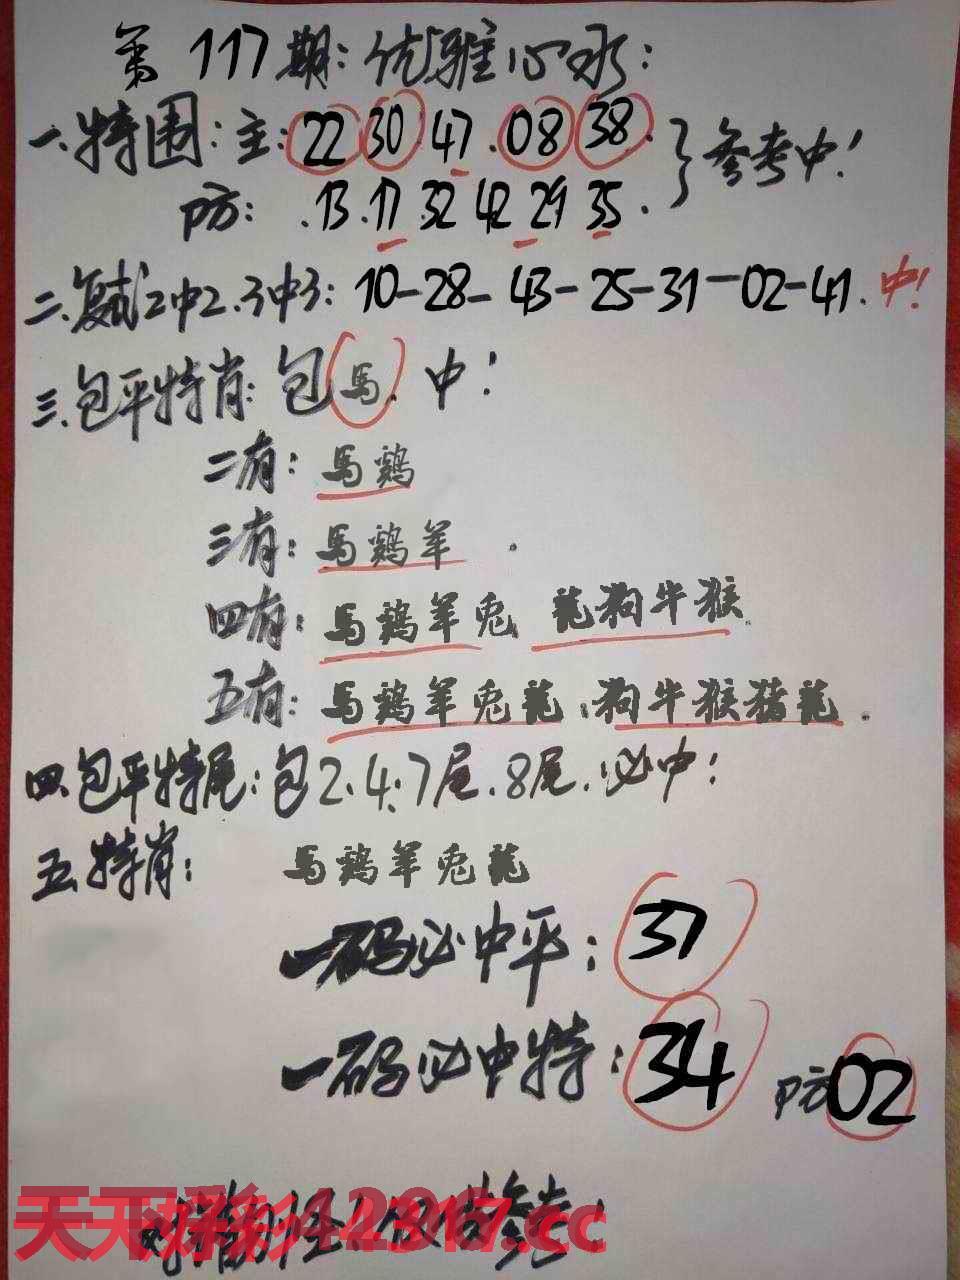 第117期:优雅心水:
一.特围:主:22 30 47.08 38.
参考中!
防:.13.17 32 42 29 35.
二.复试2中2.3中3:10-28-43-25-31-02-41.中!
三.包平特肖:包馬.中!
二有:馬鷄
三有:馬鷄羊.
四有:馬鷄羊兔 龍狗牛猴.
五有:馬鷄羊兔龍.狗牛猴猪龍.
四.包平特尾:包2.4.7尾.8尾.必中!
五.特肖:馬鷄羊兔龍
一码必中平:37
一码必中特:34 防02
天下彩 .cc